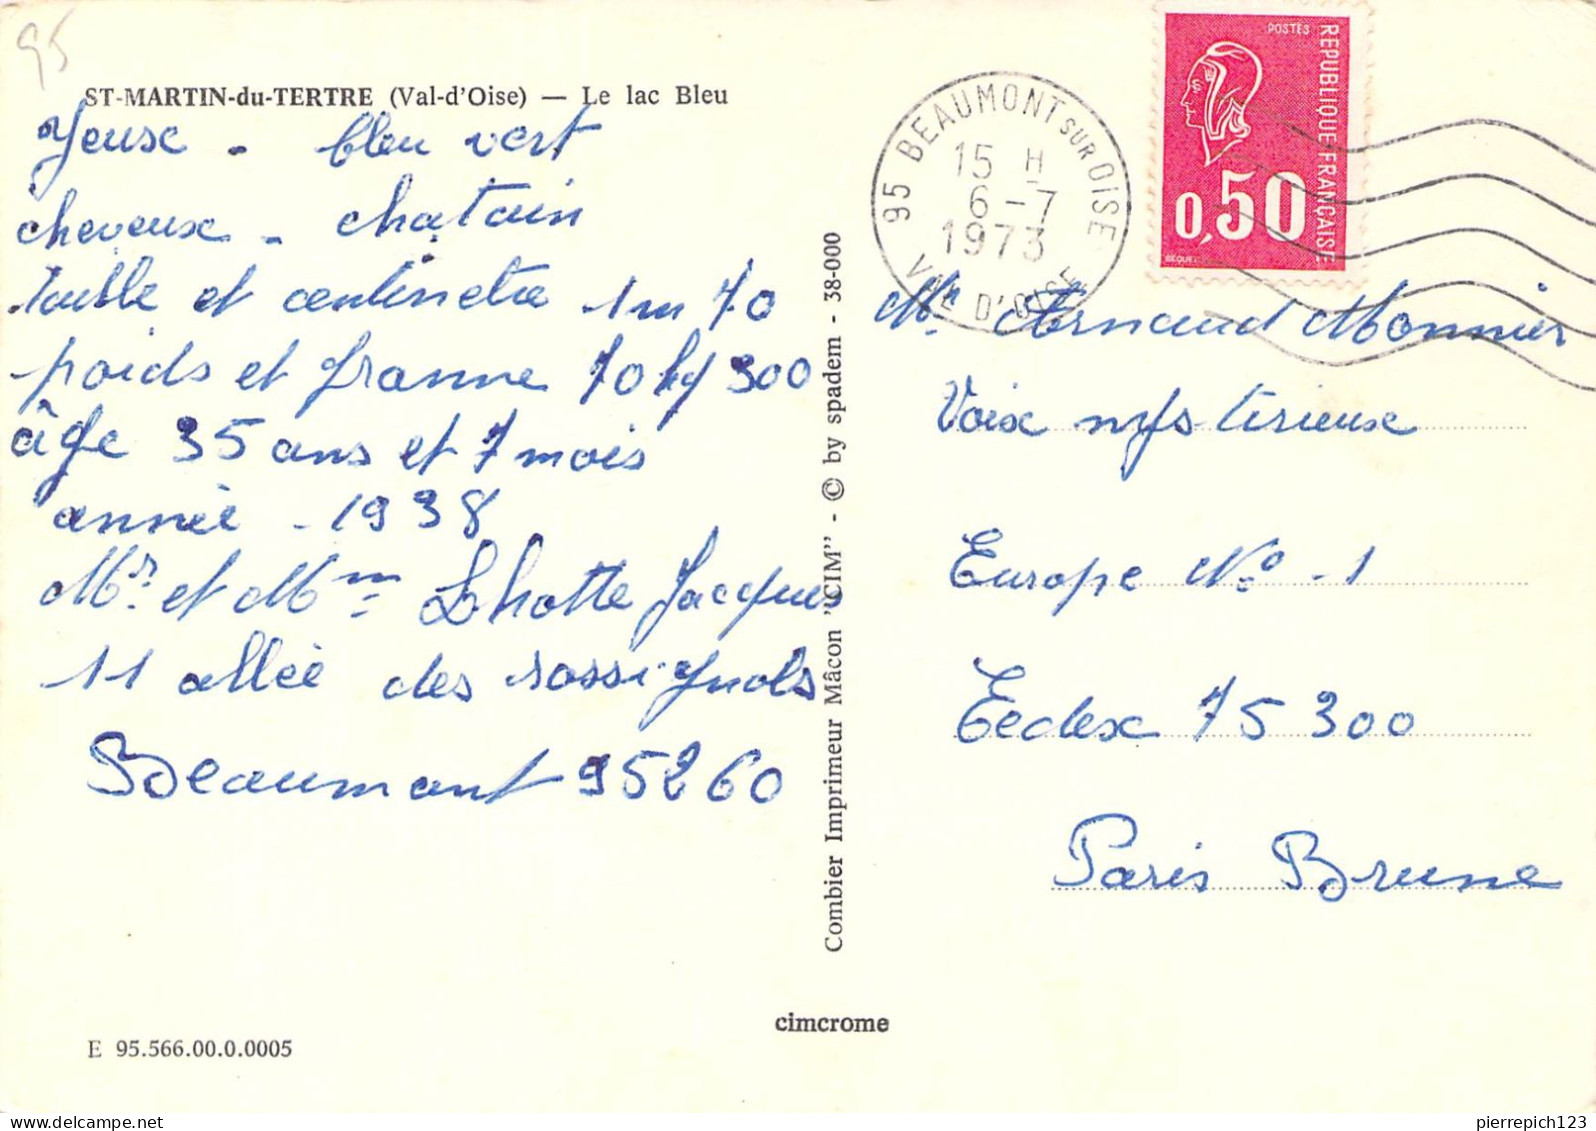 95
ST-MARTIN-du-TERTRE (Val-d'Oise) — Le lac Bleu
yeux - bleu vert
cheveux - chatain
taille et centimetre 1m 70
poids et gramme 70 kg 300
âge 35 ans et 7 mois
année - 1938
Mr et Mme Lhotte Jacques
11 allée des rossignols
Beaumont 95260
E 95.566.00.0.0005
Combier Imprimeur Mâcon "CIM" - © by spadem - 38-000
cimcrome
95 BEAUMONT SUR OISE
15 H
6-7
1973
VAL D'OISE
POSTES
REPUBLIQUE FRANÇAISE
0,50
BEQUET
Mr. Arnaud Monnier
Voix mystirieuse
Europe No - 1
Cedex 75 300
Paris Brune
pierrepich123